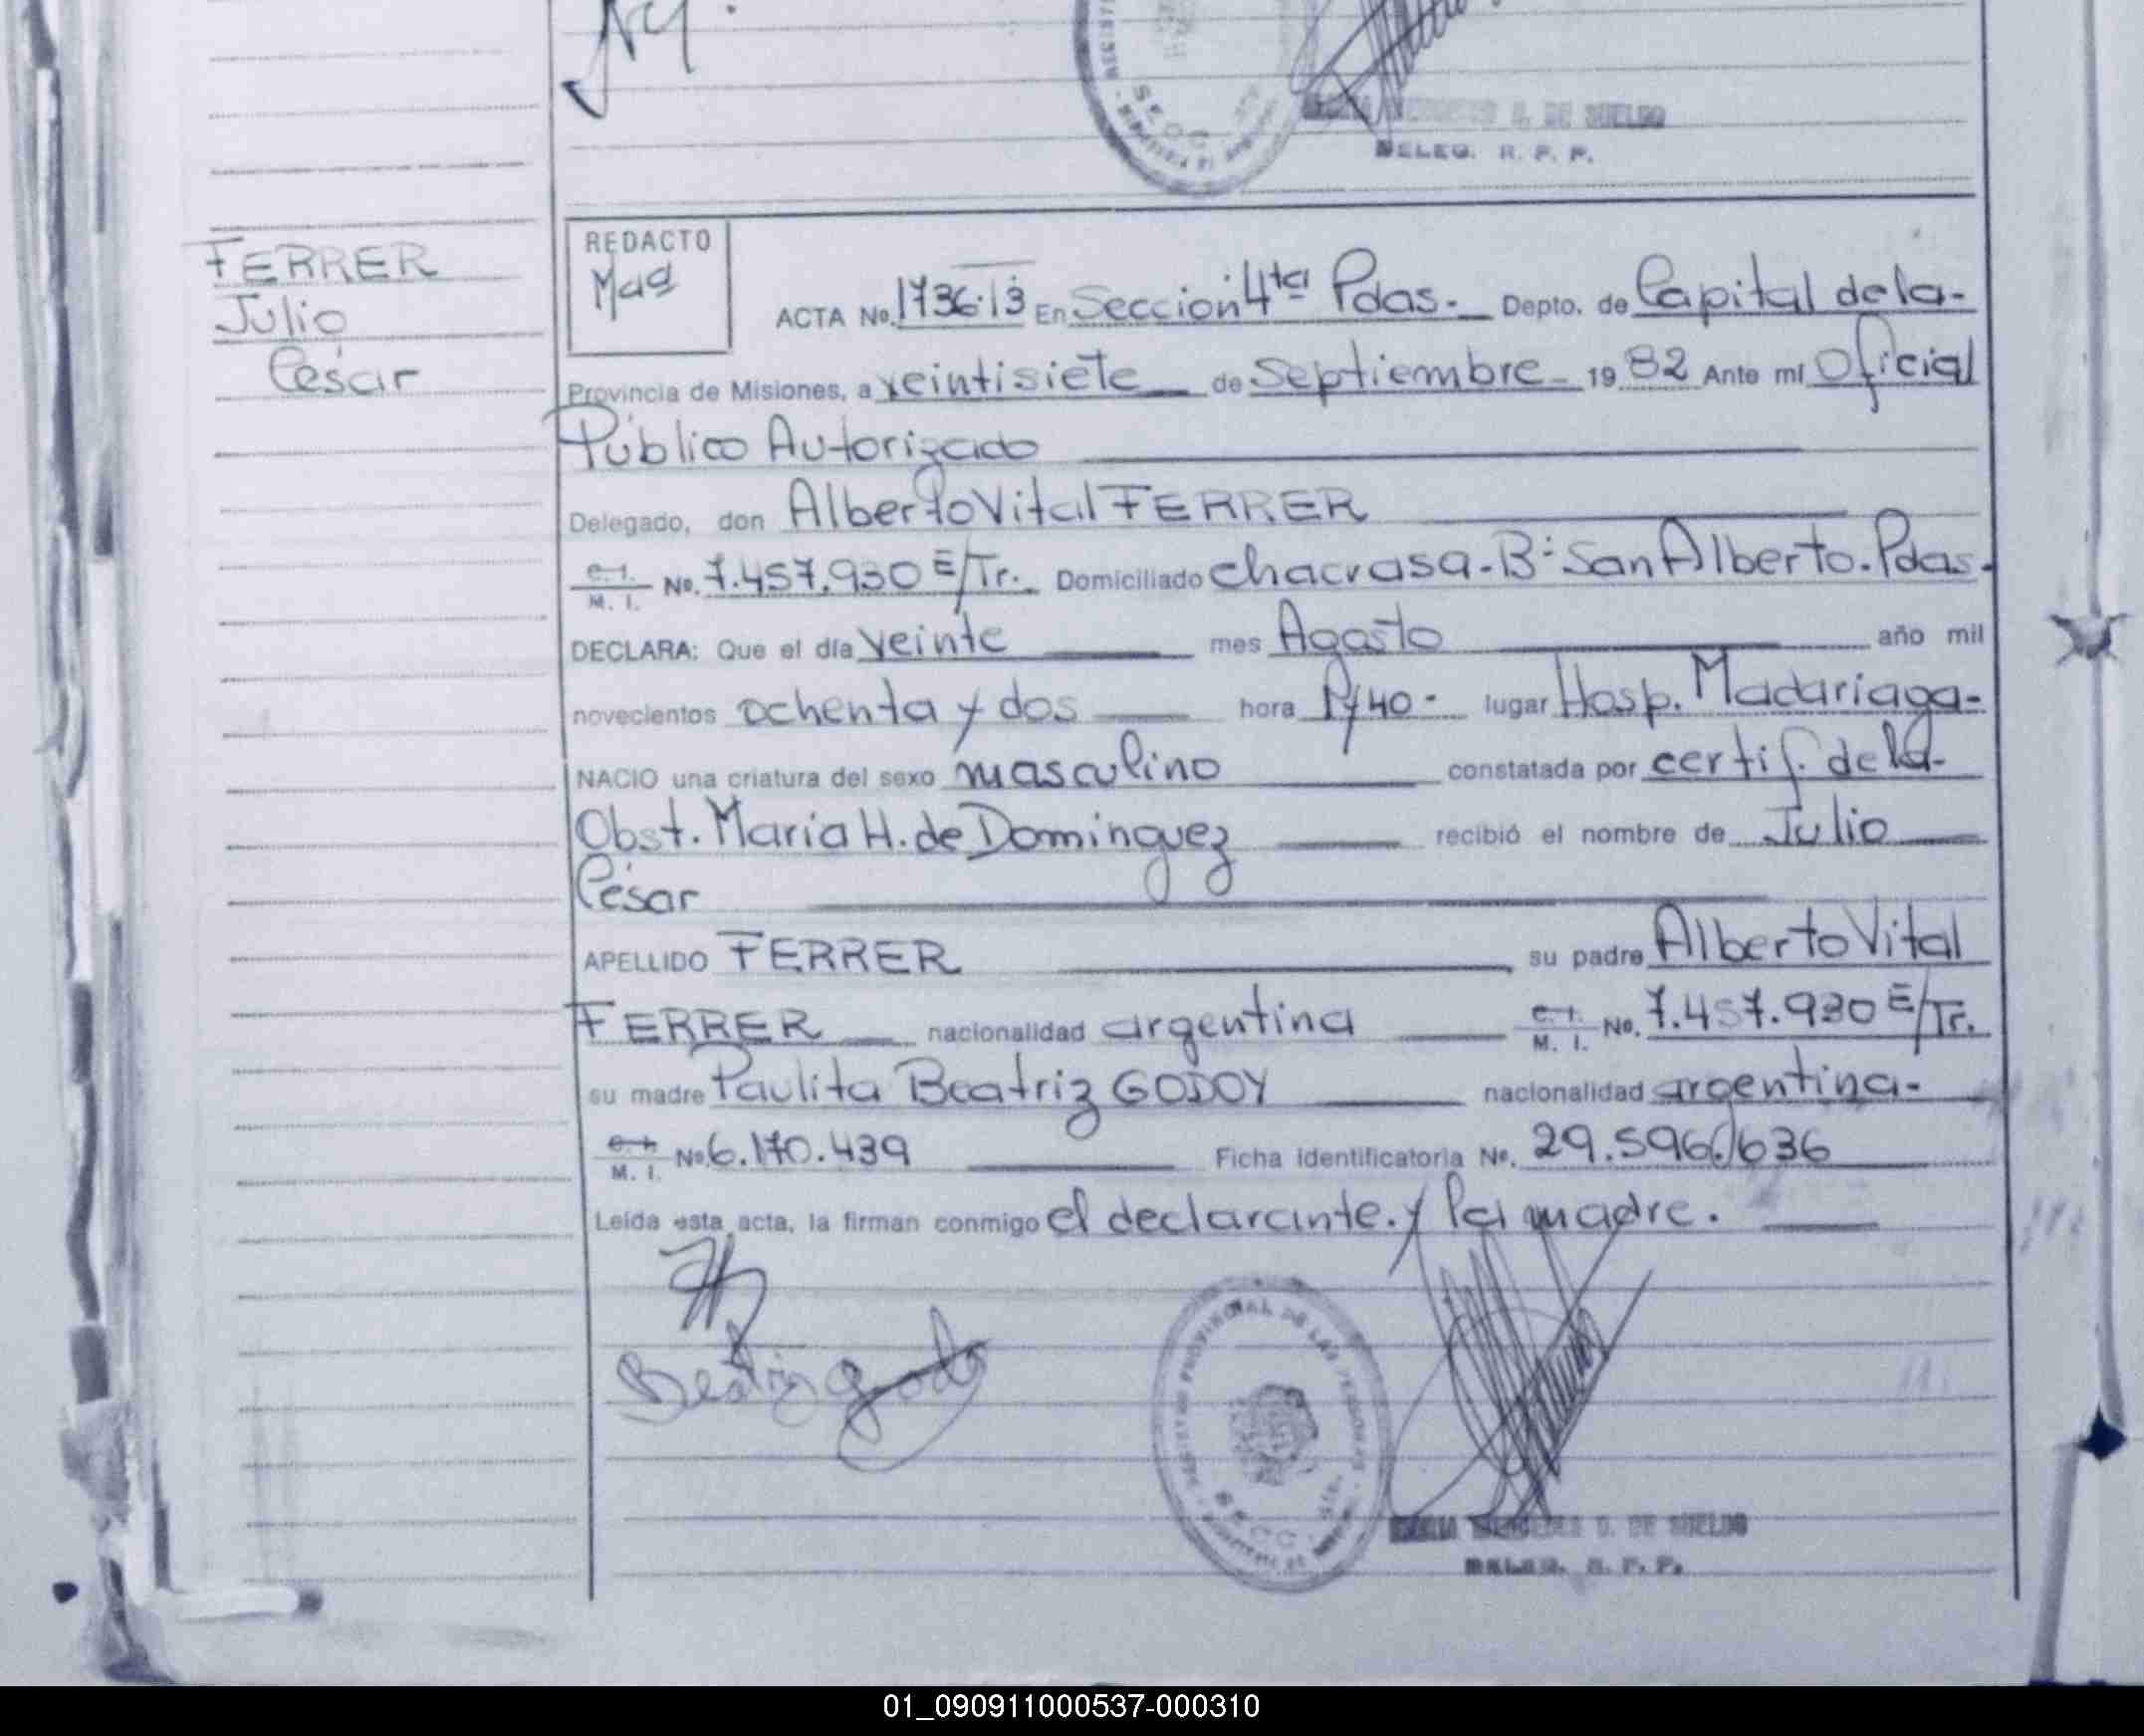 DE SUELDO
DELEG. R. P. P.
FERRER
Julio
César
REDACTO
Mag
ACTA No. En Sección 4ta Pdas. Depto. de Capital de la-
Provincia de Misiones, a veintisiete de Septiembre 19 82 Ante mí Oficial
Público Autorizado
Delegado, don Alberto Vital FERRER
M. I. No. 7.457.930 E/Tr. Domiciliado San Alberto. Pdas.
DECLARA: Que el día veinte mes Agosto año mil
novecientos ochenta y dos hora lugar Hosp. Madariaga-
NACIO una criatura del sexo masculino constatada por certif. de la-
Obst. María H. de Dominguez recibió el nombre de Julio
César
APELLIDO FERRER su padre Alberto Vital
FERRER nacionalidad argentina M. I. No. 7.457.930 E/Tr.
su madre Paulita Beatriz GODOY nacionalidad argentina-
M. I. No. 6.170.439 Ficha identificatoria No. 29.596.636
Leída esta acta, la firman conmigo el declarante. y la madre.
Beatriz
REGISTRO PROVINCIAL DE LAS PERSONAS
DE SUELDO
DELEG. R. P. P.
01_090911000537-000310